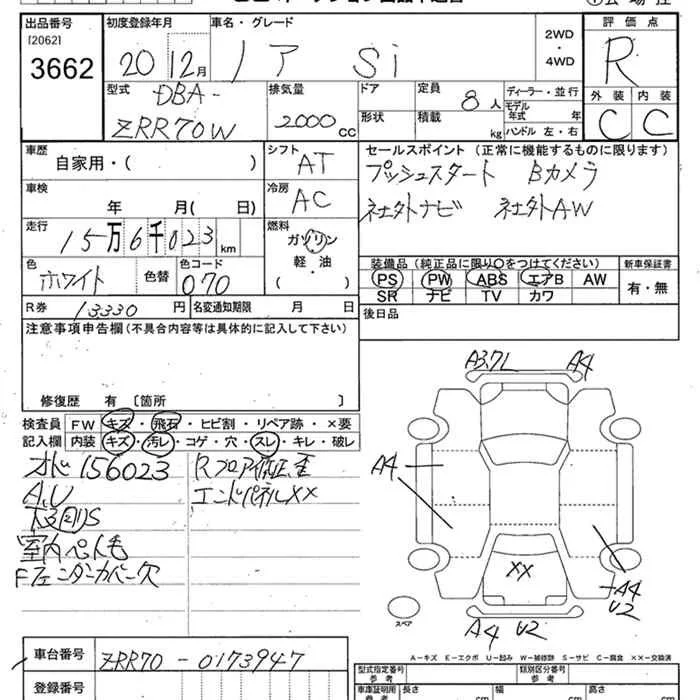 出品番号
[2062]
3662
初度登録年月
20 12月
車名・グレード
ノア Si
2WD
・
4WD
評価点
R
外装 内装
C C
型式
DBA-
ZRR70W
排気量
2000 cc
ドア
形状
定員
8人
積載
kg
ディーラー・並行
モデル年式 年
ハンドル 左・右
車歴
自家用・( )
シフト
AT
車検
年 月( 日)
冷房
AC
走行
15万6千023 km
燃料
ガソリン
軽・油
( )
色
ホワイト
色替
色コード
070
R券 13330円
名変通知期限 月 日
セールスポイント(正常に機能するものに限ります)
プッシュスタート Bカメラ
社外ナビ 社外AW
装備品(純正品に限り○をつけてください)
PS PW ABS エアB AW
SR ナビ TV カワ
新車保証書
有・無
後日品
注意事項申告欄(不具合内容等は具体的に記入して下さい)
修復歴 有〔箇所 〕
検査員記入欄
FW キズ・飛石・ヒビ割・リペア跡・×要
内装 キズ・汚レ・コゲ・穴・スレ・キレ・破レ
オド156023
A,U
室内ペット毛
Fフェンダーカバー欠
Rフロア修正歪
エンドパネル××
A3,7L
A4
A4
××
A4
U2
A4 U2
スペア
A-キズ E-エクボ U-凹み W-補修跡 S-サビ C-腐食 ××-交換済
車台番号
ZRR70-0173947
登録番号
型式指定番号
参考
類別区分番号
参考
車庫証明用
参考
長さ cm
幅 cm
高さ cm